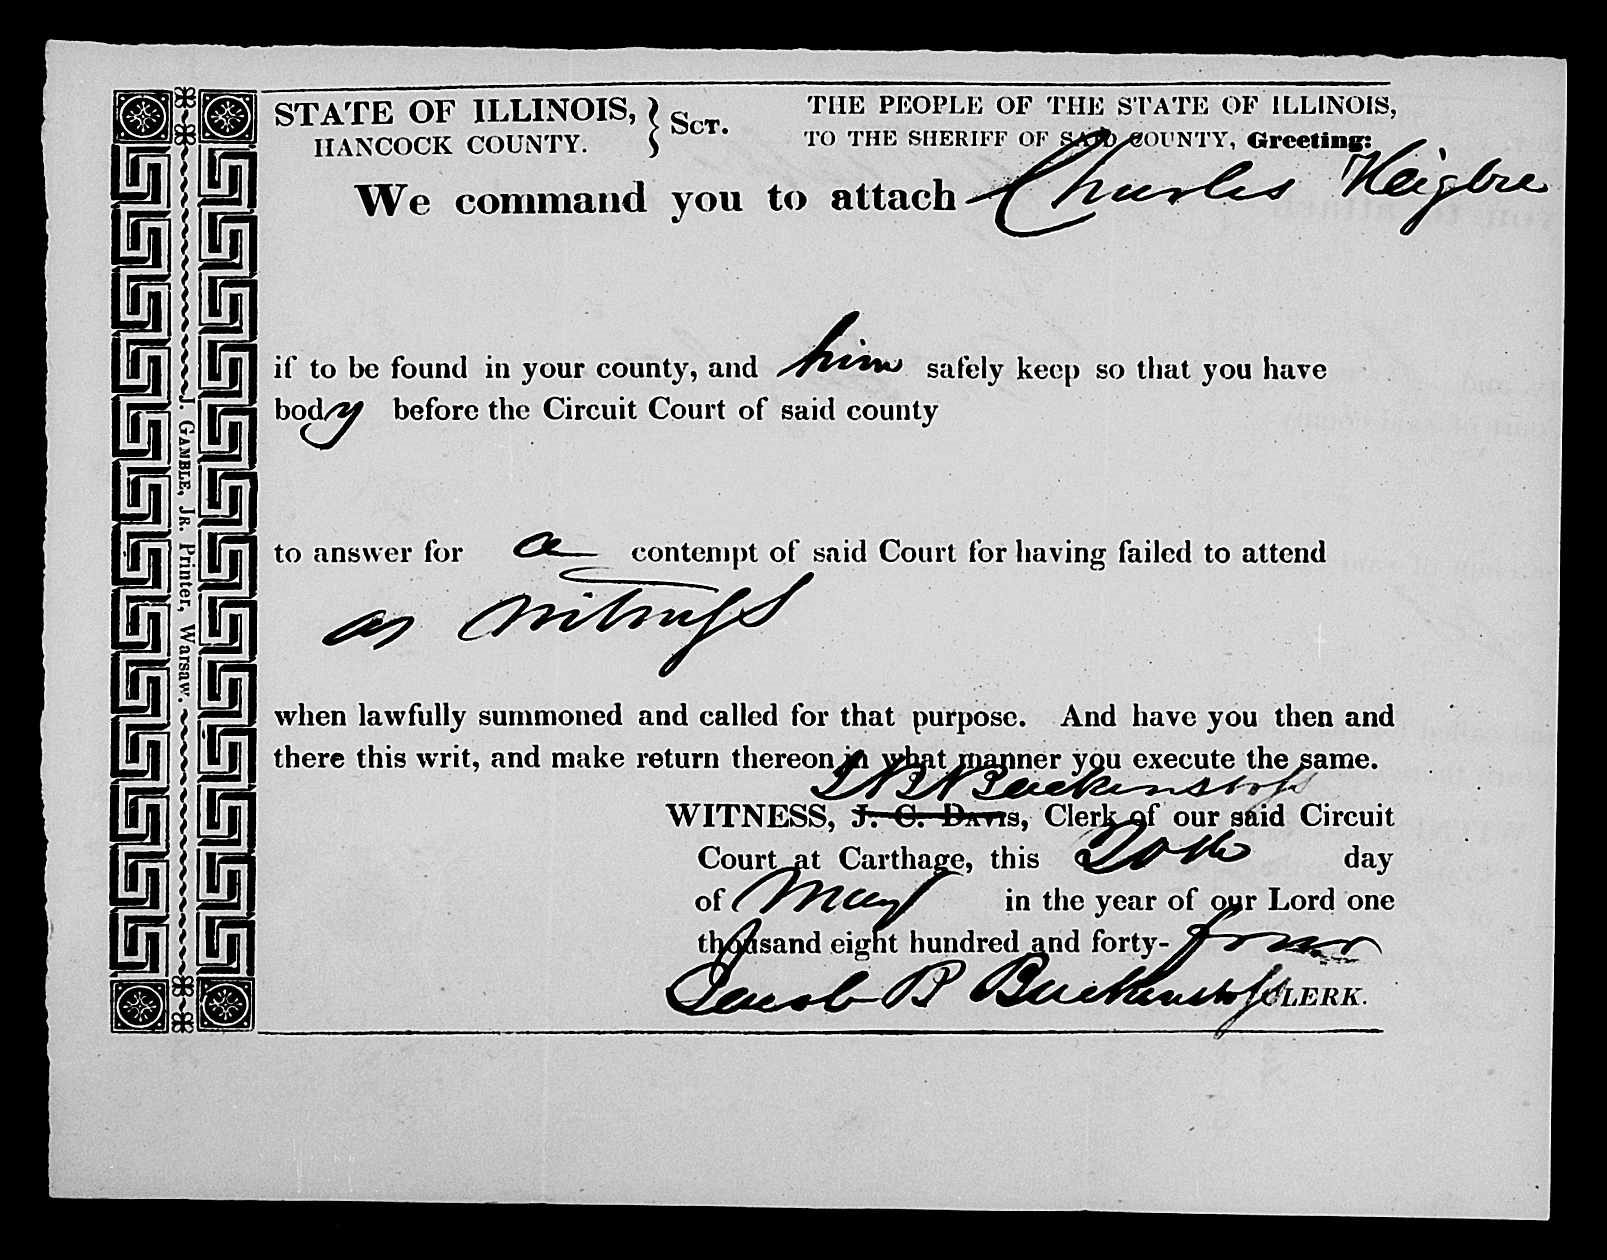 STATE OF ILLINOIS, } SCT.
HANCOCK COUNTY.
THE PEOPLE OF THE STATE OF ILLINOIS,
TO THE SHERIFF OF SAID COUNTY, Greeting:
We command you to attach Charles
if to be found in your county, and him safely keep so that you have
body before the Circuit Court of said county
to answer for a contempt of said Court for having failed to attend
as witness
when lawfully summoned and called for that purpose. And have you then and
there this writ, and make return thereon in what manner you execute the same.
J B Backenstos
WITNESS, J. C. DAVIS, Clerk of our said Circuit
Court at Carthage, this 20th day
of May in the year of our Lord one
thousand eight hundred and forty-four
Jacob B Backenstos CLERK.
J. GAMBLE, JR. Printer, Warsaw.